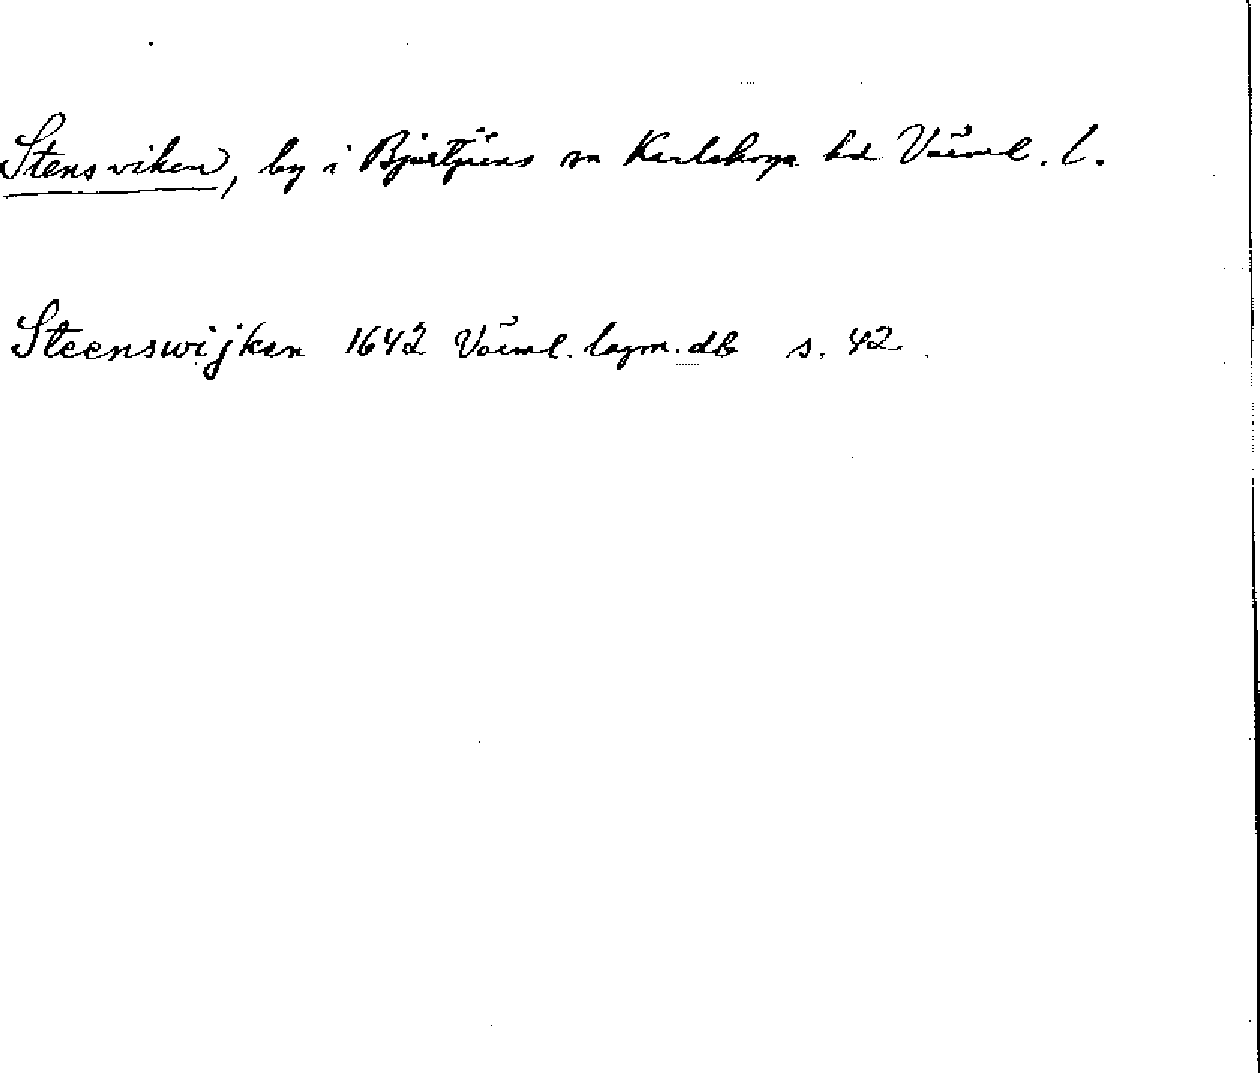 Stensviken, by i Bjurtjärns sn Karlskoga hd Värml. l.
Steenswijken 1642 Värml. lagm. db s. 42